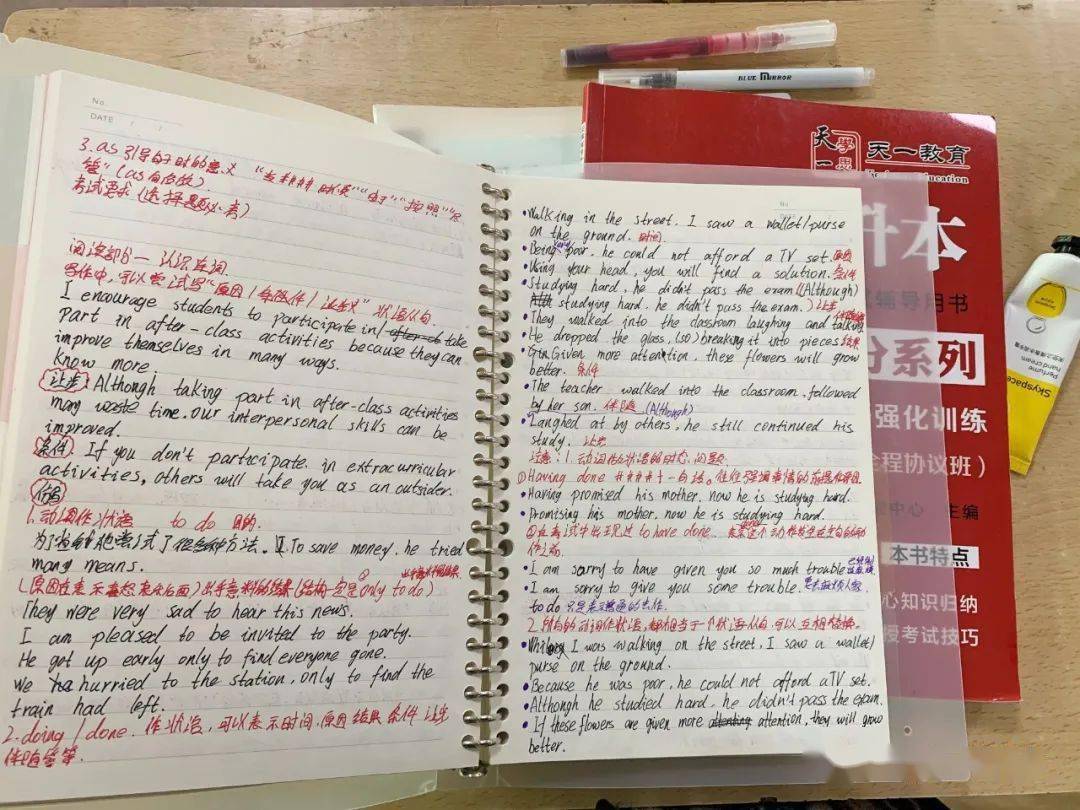 No.
DATE / /
3. as 引导句子时的意义 "当 时候" "由于" "按照" "尽
管"(as 倒装)
考试要求(选择题必考)
阅读部分 — 认识连词
写作中,可以尝试写"原因/条件/让步" 状语从句.
I encourage students to participate in/ take
part in after-class activities because they can
improve themselves in many ways.
know more
让步: Although taking part in after-class activities
many waste time. our interpersonal skills can be
improved.
条件. If you don't participate in extracurricular
activities, others will take you as an outsider.
1. 动词作状语 to do 目的.
为了省钱他尝试了很多种方法. To save money, he tried
many means.
They were very sad to hear this news.
I am pleased to be invited to the party.
He got up early only to find everyone gone.
We hurried to the station, only to find the
train had left.
2. doing / done 作状语, 可以表示时间.原因 结果 条件 让步
伴随等等.
No
Walking in the street. I saw a wallet/purse
on the ground. 时间.
Being very poor, he could not afford a TV set. 原因
Using your head, you will find a solution. 条件
Studying hard, he didn't pass the exam ((Although)
studying hard, he didn't pass the exam.) 让步
They walked into the classroom laughing and talking
He dropped the glass, (so) breaking it into pieces 结果
Given more attention, these flowers will grow
better. 条件
The teacher walked into the classroom, followed
by her son. 伴随 (Although)
Langhed at by others, he still continued his
study. 让步
注意: 1. 动词作状语的时态问题
Having promised his mother, now he is studying hard.
Promising his mother, now he is studying hard.
②在考试中出现过 to have done.
作之前.
I am sorry to have given you so much trouble
I am sorry to give you some trouble.
to do
2. 所有的动词作状语, 都相当于一个状语从句, 可以互相替换.
I was walking on the street, I saw a wallet/
purse on the ground.
Because he was poor, he could not afford a TV set.
Although he studied hard, he didn't pass the exam.
If these flowers are given more attention, they will grow
better.
BLUE MIRROR
天一
天一教育
升本
辅导用书
分系列
强化训练
全程协议班)
中心 主编
本书特点
心知识归纳
授考试技巧
Perfume
hand cream
Skyspace